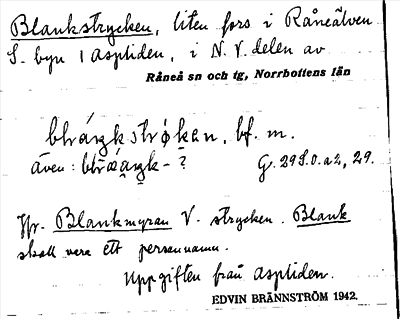 Blankstrycken, liten fors i Råneälven
S. byn i Asptiden, i N.V. delen av
Råneå sn och tg, Norrbottens län
blráŋkstrøkan, bf. m.
även: blrææŋk-?
Gr. 29 S.0. a2, 29.
Jfr. Blankmyran V. strycken. Blank
skall vara ett personnamn.
Uppgiften från Asptiden.
EDVIN BRÄNNSTRÖM 1942.